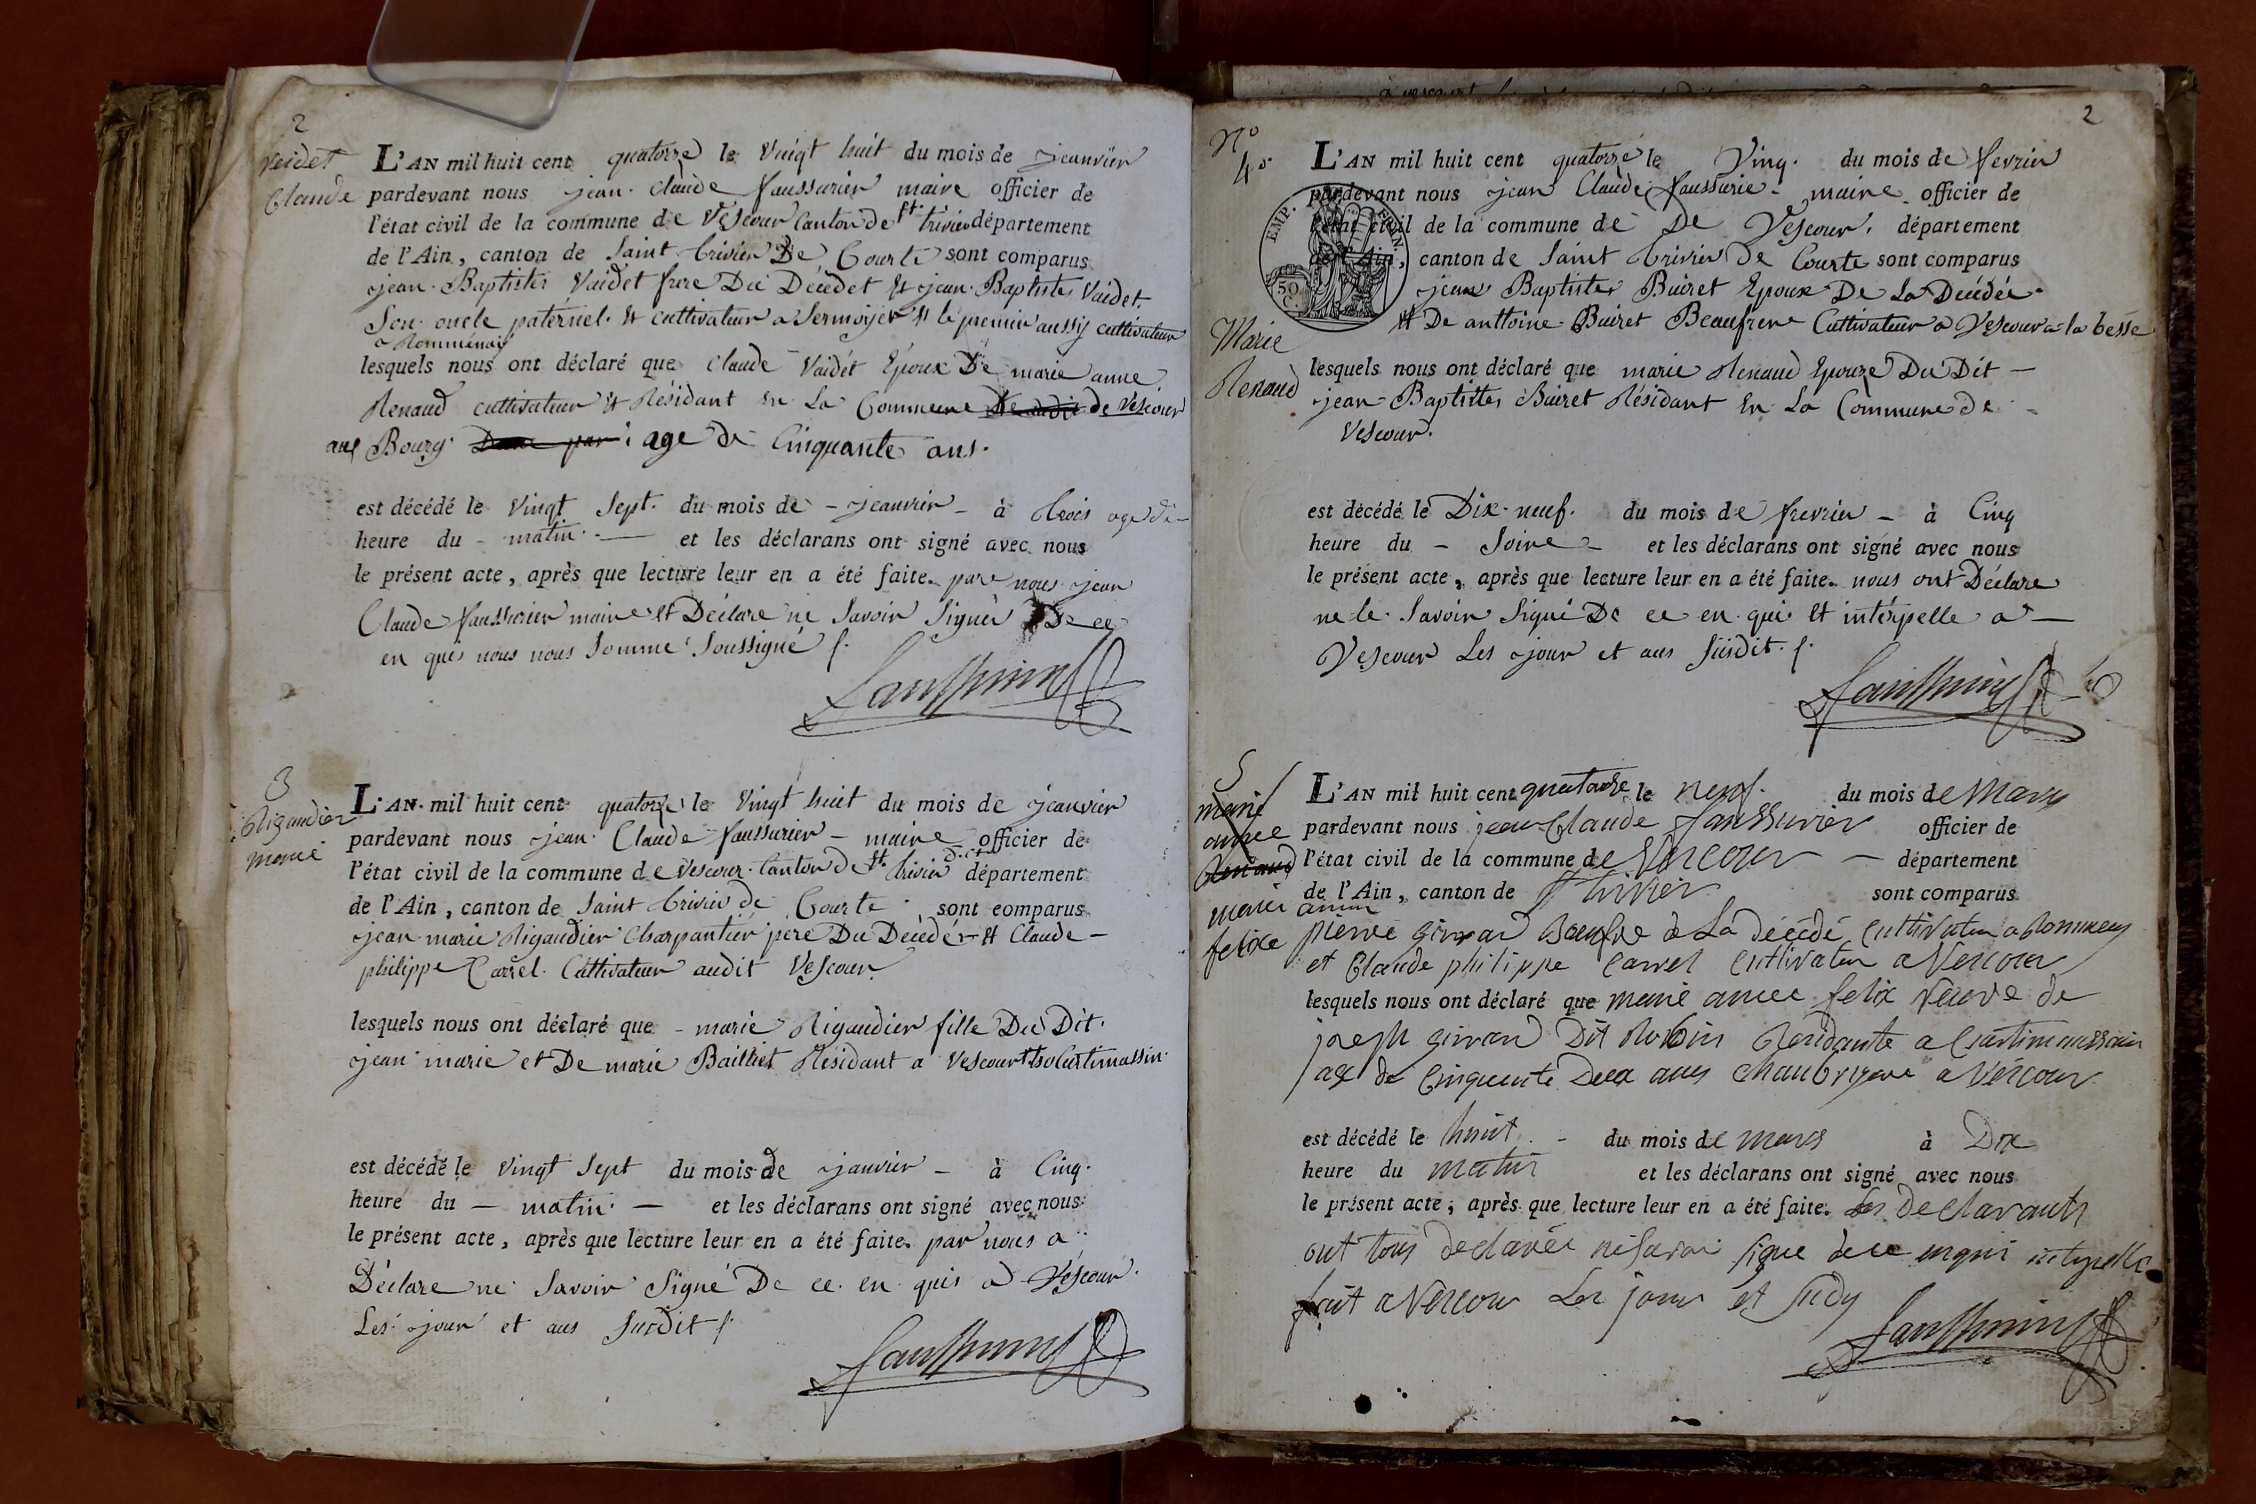 2
Veidet
Claude
L'AN mil huit cent quatorze le Vingt huit du mois de jeanvier
pardevant nous jean Claude faussurier maire officier de
l'état civil de la commune de Vescour Canton de st. trivier département
de l'Ain, canton de Saint trivier De Courte sont comparus
jean Baptiste Vaidet frere Du Décedet et jean Baptiste Vaidet
Son oncle paternel et cultivateur a Sermoyer et le premier aussy cultivateur
a Rommenay
lesquels nous ont déclaré que Claude Vaidet Epoux De marie anne
Renaud cultivateur et Résidant En La Commune de Vescour
au Bourg age de Cinquante ans.
est décédé le Vingt Sept. du mois de - jeanvier - à trois age de
heure du - matin - et les déclarans ont signé avec nous
le présent acte, après que lecture leur en a été faite. par nous jean
Claude faussurier maire et Déclare ne Savoir Signer De ce
en quis nous nous Somme Soussigné
3
Rigaudier
marie
L'AN mil huit cent quatorze le Vingt huit du mois de jeanvier
pardevant nous jean Claude faussurier - maire officier de
l'état civil de la commune de Vescour Canton de st. trivier département
de l'Ain, canton de Saint trivier de Courte sont comparus
jean marie Rigaudier Charpantier père Du Décedér et Claude -
philippe Carrel Cultivateur audit Vescour
lesquels nous ont déclaré que - marie Rigaudier fille Du Dit
jean marie et De marie Baillet Résidant a Vescour
est décédé le Vingt Sept du mois de janvier - à Cinq.
heure du - matin - et les déclarans ont signé avec nous
le présent acte, après que lecture leur en a été faite. par nous a
Déclare ne Savoir Signé De ce en quis a Vescour.
Les jour et aus Susdit
2
No
4
EMP. FRAN.
50
C.
Marie
Renaud
L'AN mil huit cent quatorze le Vinq. du mois de fevrier
pardevant nous jean Claude faussurie - maire officier de
l'état civil de la commune de De Vescour. département
de l'Ain, canton de Saint trivier De Courte sont comparus
jean Baptiste Buiret Epoux De La Decédée
et De anttoine Buiret Beaufrere Cultivateur a Vescour a la besse
lesquels nous ont déclaré que marie Renaud Epouze Du Dit -
jean Baptiste Buiret Résidant En La Commune de
Vescour.
est décédé le Dix-neuf. du mois de frevrier - à Cinq
heure du - Soire - et les déclarans ont signé avec nous
le présent acte, après que lecture leur en a été faite. nous ont Déclare
ne le Savoir Signé De ce en quis et intérpelle a -
Vescour Les jour et aus Susdit.
5
marie
annee
Renaud
marie
felixe
L'AN mil huit cent quatorze le neuf. du mois de Mars
pardevant nous jean Claude faussurier officier de
l'état civil de la commune de Vescour - département
de l'Ain, canton de St trivier sont comparus
pierre girar Beaufre de La décédé cultivateur a Rommeney
et Claude philippe Carrel cultivateur a Vescour
lesquels nous ont déclaré que marie annee felix veuve de
joseph girar Dit Robin Residante a
age de cinquente Deux ans a Vescour
est décédé le huit - du mois de mars à Dix
heure du matin et les déclarans ont signé avec nous
le présent acte, après que lecture leur en a été faite. Les Declarants
ont tous declarée ne savoir signe de ce enqui intepelle
fait a Vescour Les jour et susdy